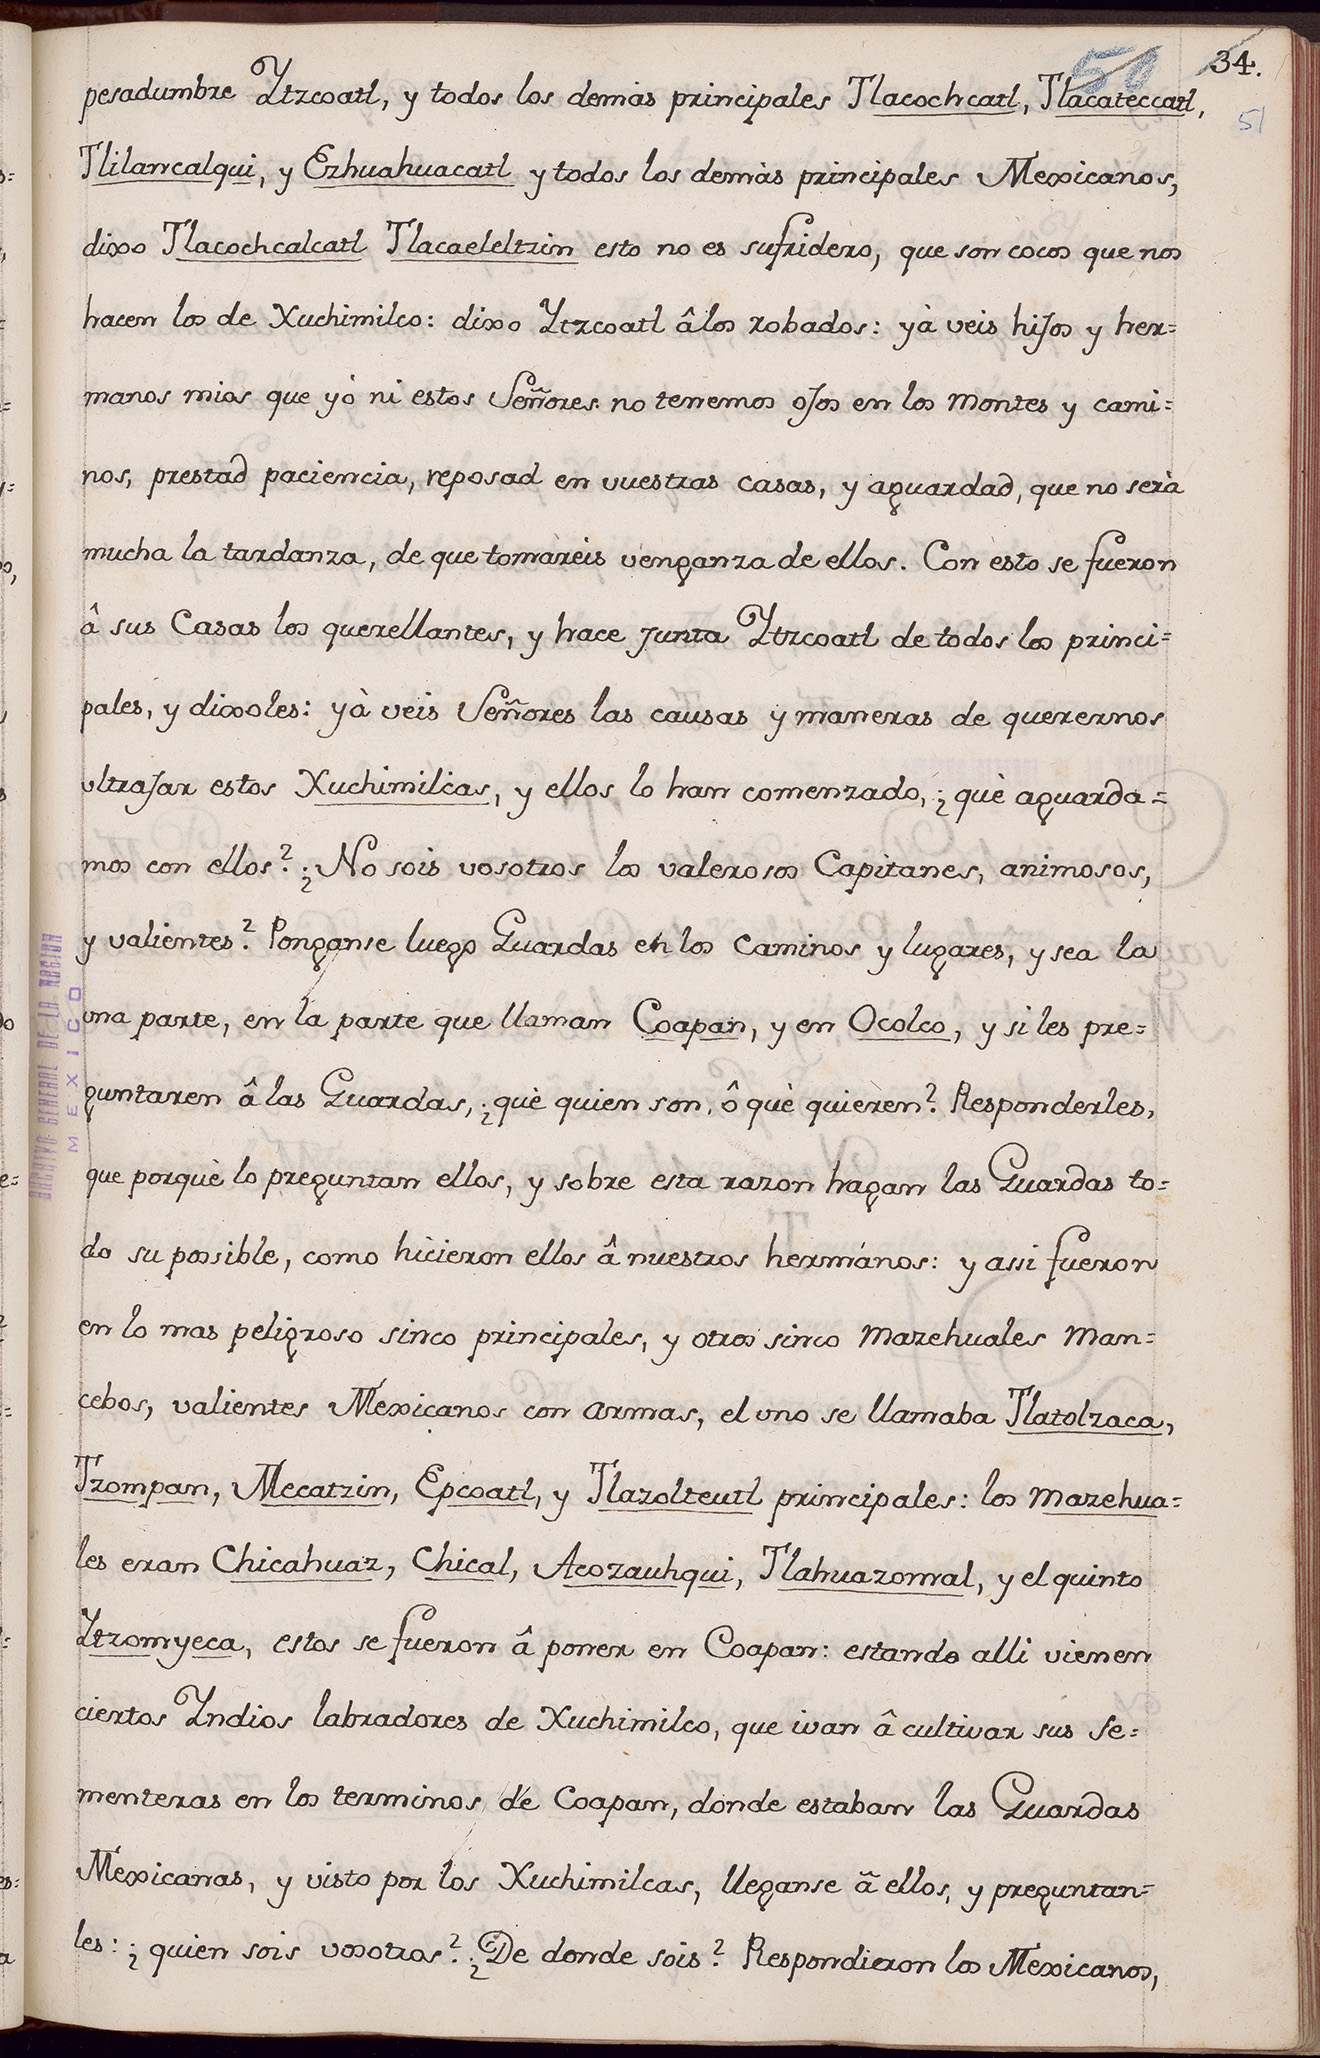 50 34.
51
pesadumbre Ytzcoatl, y todos los demàs principales Tlacochcatl, Tlacateccatl,
Tlilancalqui, y Ezhuahuacatl y todos los demàs principales Mexicanos,
dixo Tlacochcalcatl Tlacaeleltzin esto no es sufridero, que son cocos que nos
hacen los de Xuchimilco: dixo Ytzcoatl â los robados: yà veis hijos y her=
manos mios que yò ni estos Señores no tenemos ojos en los Montes y cami=
nos, prestad paciencia, reposad en vuestras casas, y aguardad, que no serà
mucha la tardanza, de que tomarèis venganza de ellos. Con èsto se fueron
â sus Casas los querellantes, y hace Junta Ytzcoatl de todos los princi=
pales, y dixoles: yà veis Señores las causas y maneras de querernos
ultrajar estos Xuchimilcas, y ellos lo han comenzado, ¿què aguarda=
mos con ellos? ¿No sois vosotros los valerosos Capitanes, animosos,
y valientes? Ponganse luego Guardas en los Caminos y lugares, y sea la
una parte, en la parte que llaman Coapan, y en Ocolco, y si les pre=
guntaren â las Guardas, ¿què quien son, ô què quieren? Responderles,
que porquè lo preguntan ellos, y sobre esta razon hagan las Guardas to=
do su possible, como hicieron ellos â nuestros hermanos: y assi fueron
en lo mas peligroso sinco principales, y otros sinco Mazehuales Man=
cebos, valientes Mexicanos con armas, el uno se llamaba Tlatolzaca,
Tzompan, Mecatzin, Epcoatl, y Tlazolteutl principales: los Mazehua=
les eran Chicahuaz, Chical, Acozauhqui, Tlahuazomal, y el quinto
Ytzomyeca, estos se fueron â poner en Coapan: estando alli vienen
ciertos Yndios labradores de Xuchimilco, que ivan â cultivar sus Se=
menteras en los terminos de Coapan, donde estaban las Guardas
Mexicanas, y visto por los Xuchimilcas, lleganse â ellos, y preguntan=
les: ¿quien sois vosotros? ¿De donde sois? Respondieron los Mexicanos,
ARCHIVO GENERAL DE LA NACION
MEXICO